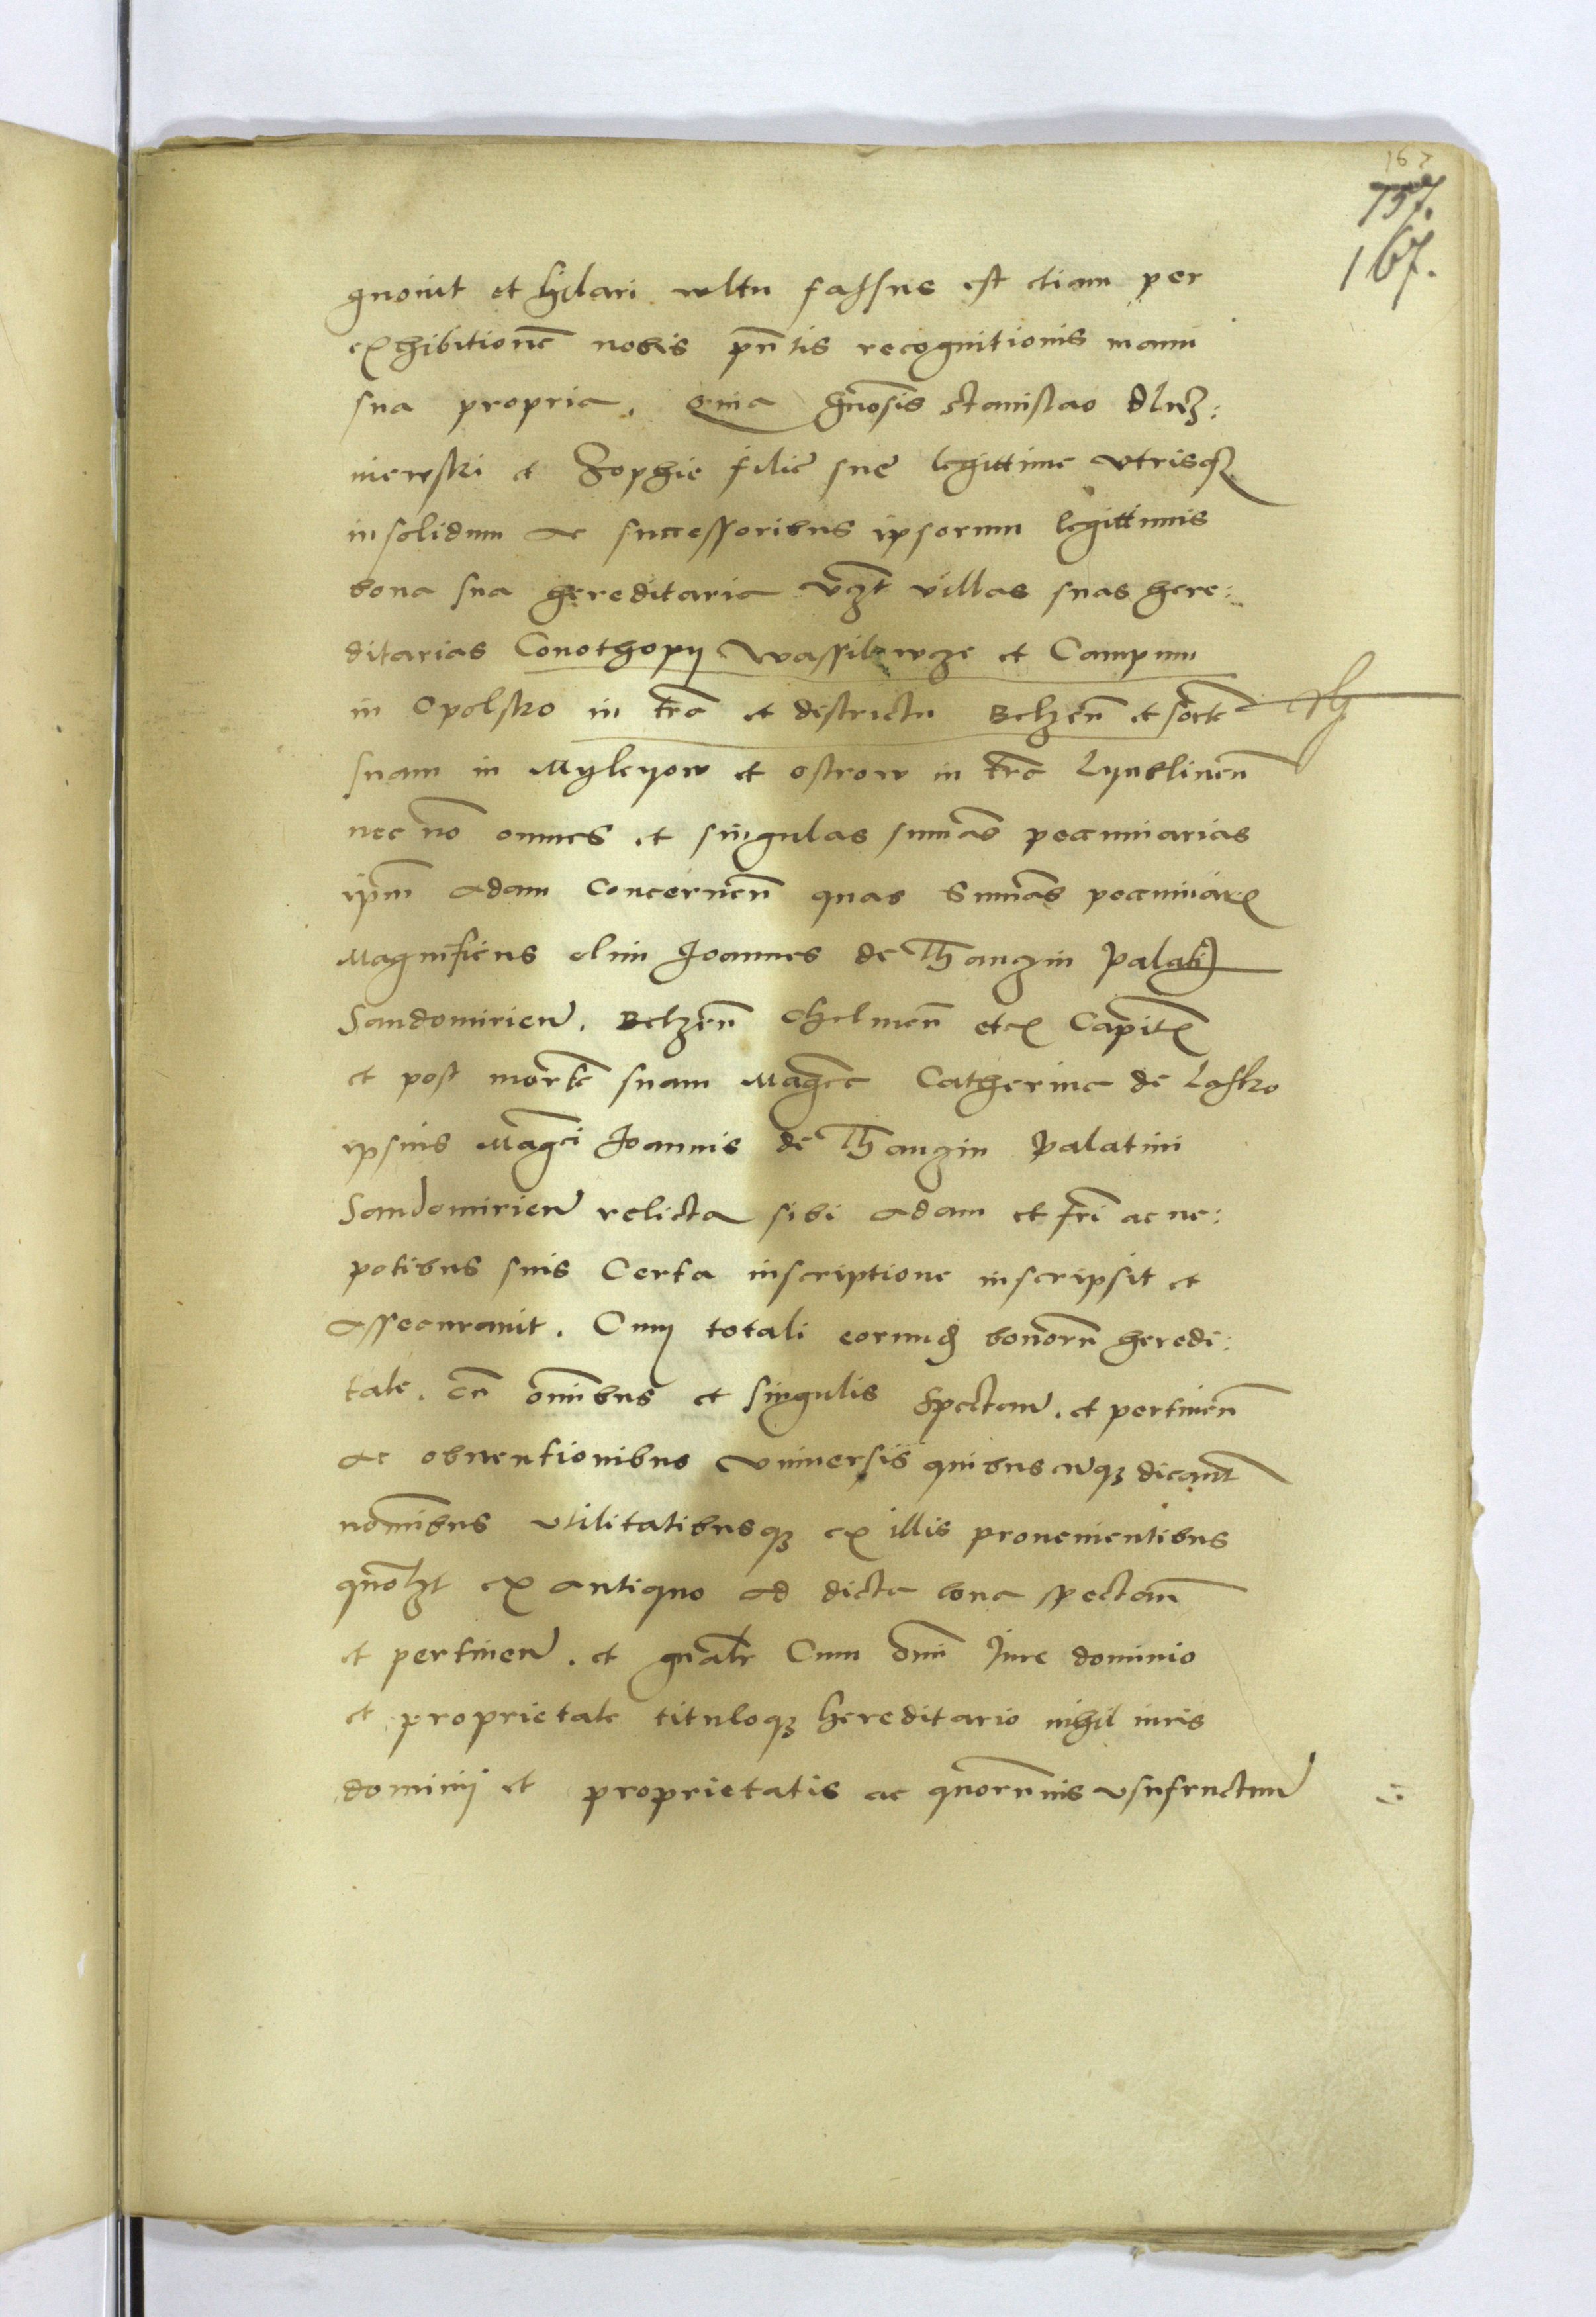 167
157.
167.
gnovit et hilari vultu fassus est etiam per
exhibitione͞ nobis pn͞tis recognitionis manu
sua propria. Quia Gn͞osis Stanislao Dluz:
niewski et Zophie filie sue legittime utrisqꝫ
insolidum ac successoribus ipsorum legittimis
bona sua hereditaria vz͞t villas suas here:
ditarias Conothopy Wassilowze et Campum
in Opolsko in tr͞a et districtu Belzen͞ et sorte͞
suam in Myleyow et Ostrow in tr͞a Lynblinen͞
nec no͞ omnes et singulas sum͞as pecuniarias
ipm͞ Adam Concernen͞ quas Sum͞as pecuniar͞
Magnificus olim Joannes de Thanczin Palati͞
Sandomirien͞. Belzen͞ Chelmen͞ etc͞ Capit͞
et post morte͞ suam Mag͞ca Catherina de Lasko
ipsius Mag͞ci Joannis de Thanczin Palatini
Sandomirien͞ relicta sibi Adam et fr͞i ac ne:
potibus suis Certa inscriptione inscripsit et
assecuravit. Cum totali eorund͞ bonoru͞ heredi:
tate. cu͞ om͞ibus et singulis Spectan͞. et pertinen͞
ac obventionibus universis quibuscu͞qꝫ dicant͞
nom͞ibus utilitatibusqꝫ ex illis provenientibus
quo͞lz͞t ex antiquo ad dicta bona spectan͞
et pertinen͞. et gn͞alr Cum om͞i Jure dominio
et proprietate tituloqꝫ hereditario nihil iuris
dominij et proprietatis ac quoru͞nis usufructuu͞